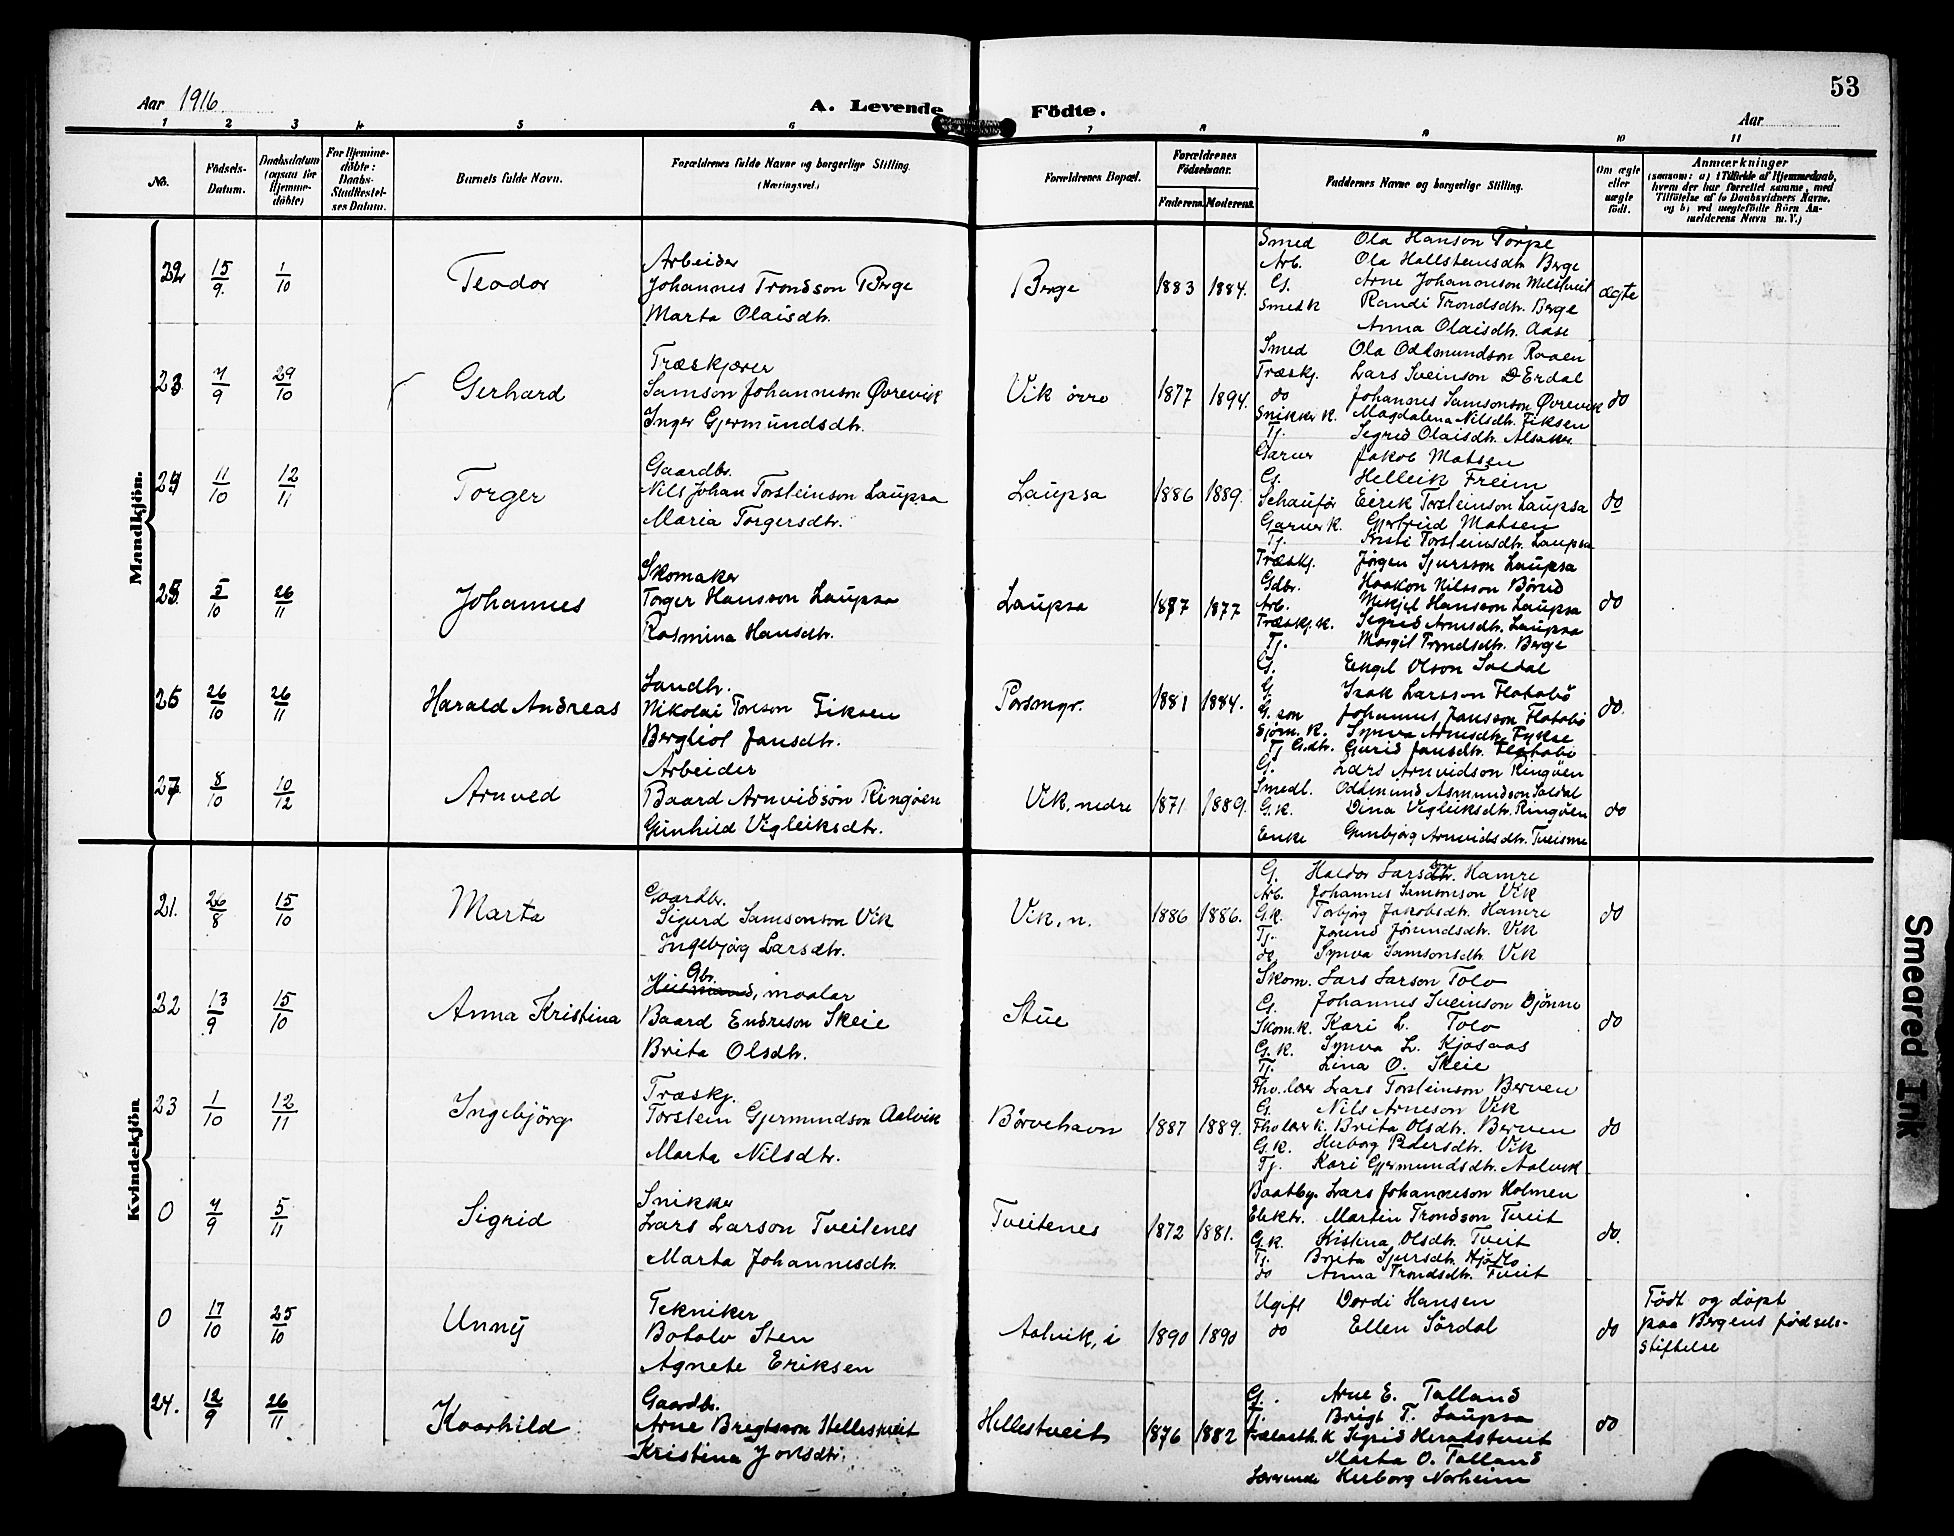 53
Aar 1916
A. Levende Födte.
Aar
1 2 3 4 5 6 7 8 9 10 11
No.
Födsels-Datum.
Daabsdatum (ogsaa for Hjemme-döbte)
For Hjemme-döbte: Daabs-Stadfæstel-ses Datum.
Barnets fulde Navn.
Forældrenes fulde Navne og borgerlige Stilling. (Næringsvei.)
Forældrenes Bopæl.
Forældrenes Födselsaar.
Faderens. Moderens.
Faddernes Navne og borgerlige Stilling.
Om ægte eller uægte födt.
Anmærkninger
(saasom: a) i Tilfælde af Hjemmedaab,
hvem der har forrettet samme, med
Tilföielse af to Daabsvidners Navne.
og b) ved uægtefödte Börn An-
melderens Navn m. V.)
Mandkjön.
22 15/9. 1/10 Teodor
Arbeider
Johannes Trondson Berge
Marta Olaisdtr.
Berge 1883 1884.
Smed Ola Hanson Torpe
Arb. Ola Hallsteinsdtr. Berge
G. Arne Johanneson Melstveit
Smedk Randi Trondsdtr. Berge
Anna Olaisdtr. Aase
ægte
23 7/9 29/10 Gerhard
Træskjærer
Samson Johanneson Øvrevik
Inger Gjermundsdtr.
Vik övre 1877 1894.
Smed Ola Oddmundson Raaen
Træskj. Lars Sveinson Erdal
do Johannes Samsonson Øvrevik
Snikker k. Magdalena Nilsdtr. Fiksen
Tj. Sigrid Olaisdtr. Alsaker
do
24 11/10 12/11 Torger
Gaardbr.
Nils Johan Torsteinson Laupsa
Maria Torgersdtr.
Laupsa 1886 1889.
Garver Jakob Matsen
G. Helleik Freim
Schauför Eirik Torsteinson Laupsa
Garver k. Gjertrud Matsen
Tj. Kristi Torsteinsdtr. Laupsa
do
25. 5/10 26/11 Johannes
Skomaker
Torger Hansson Laupsa
Rasmina Hansdtr.
Laupsa 1887 1877
Træskj. Jörgen Sjursson Laupsa
Gdbr. Haakon Nilsson Börud
Arb. Mikjel Hansson Laupsa
Træskj. k. Sigrid Arnesdtr. Laupsa
Tj. Margit Trondsdtr. Berge
do
26 26/10 26/11 Harald Andreas
Landh.
Nikolai Toreson Fiksen
Bergliot Jansdtr.
Porsmyr. 1881 1884.
G. Engel Olson Soldal
G. Isak Larsson Flotabö
G. son Johannes Jansson Flotabö
Sjöm. K. Synva Arnesdtr. Fykse
Tj G.dtr. Gurid Jansdtr. Flotabö
do.
27 8/10 10/12 Arnved
Arbeider
Baard Arnvidson Ringöen
Gunhild Vigleiksdtr.
Vik, nedre 1871 1889.
G. Lars Arnvidson Ringöen
Smedl. Oddmund Asmundson Soldal
G.k. Dina Vigleiksdtr. Ringöen
Enke Gunbjörg Arnvidsdtr. Tveisme
do
Kvindekjön
21. 26/8 15/10 Marta
Gaardbr.
Sigurd Samsonson Vik
Ingebjörg Larsdtr.
Vik, n. 1886 1886.
G. Haldor Larsson Hamre
Arb. Johannes Samsonson Vik
G.k. Torbjörg Jakobsdtr. Hamre
Tj. Jorund Jörundsdtr. Vik
do Synva Samsonsdtr. Vik
do
22 13/9 15/10 Anna Kristina
Gbr.
maalar
Baard Endreson Skeie
Brita Olsdtr.
Stue
Skom. Lars Larson Tolo
G. Johannes Sveinson Djönne
Skom.k. Kari L. Tolo
G.K. Synva L. Kjosaas
Tj. Lina O. Skeie
do
23 1/10 12/11 Ingebjörg
Træskj.
Torstein Gjermundson Aalvik
Marta Nilsdtr.
Börvehavn 1887 1889.
Fhv. lærer Lars Torsteinson Berven
G. Nils Arneson Vik
Fhv lærer k. Brita Olsdtr. Berven
G.K. Herborg Pedersdtr. Vik
Tj. Kari Gjermundsdtr. Aalvik
do
0 7/9 5/11 Sigrid
Snikker
Lars Larson Tveitenes
Marta Johannesdtr.
Tveitenes 1872 1881.
Baatby. Lars Johanneson Holmen
Elektr. Martin Trondson Tveit
G.K. Kristina Olsdtr. Tveit
Tj. Brita Sjursdtr. Hjöllo
do Anna Trondsdtr. Tveit
do.
0 17/10 25/10 Unny
Tekniker
Botolv Sten
Agnete Eriksen
Aalvik, i 1890 1890
Ugift Dordi Hansen
do Ellen Sördal
do
Födt og döpt
paa Bergens födsels-
stiftelse
24. 12/9 26/11 Kvarhild
Gaardbr.
Arne Brigtsson Hellestveit
Kristina Joelsdtr.
Hellestveit 1876 1882
G. Arne E. Talland
Tj. Brigt T. Laupsa
K Sigrid Heradstveit
Marta O. Talland
Lærerinde Herborg Norheim
do
Smeared Ink